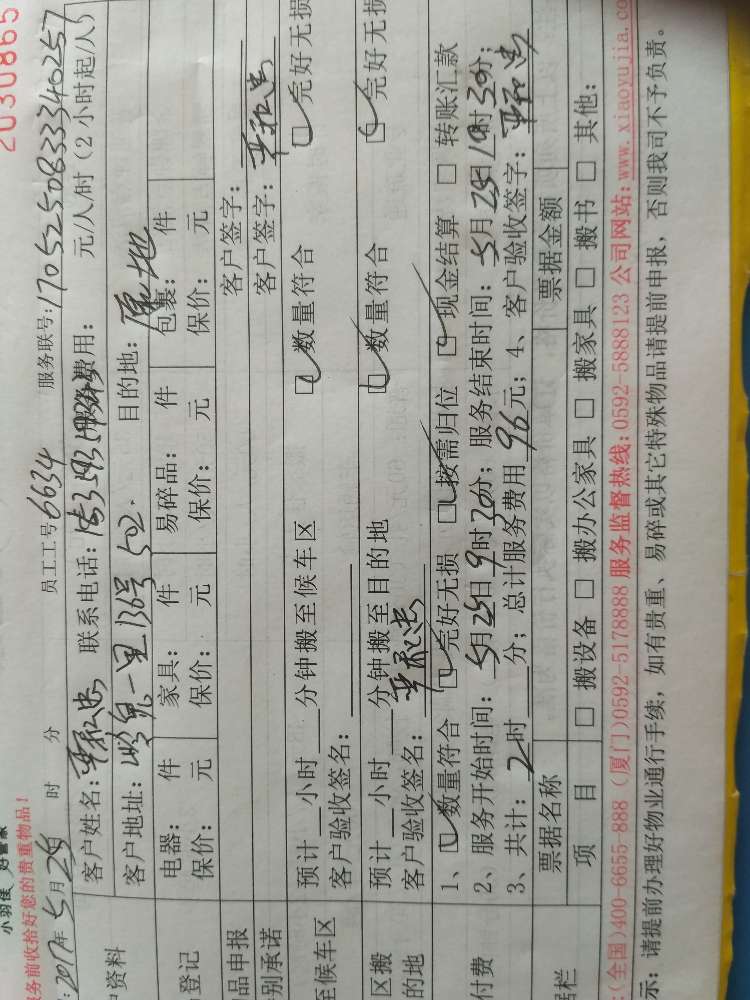 2030865
小羽佳 好管家
务前收拾好您的贵重物品!
2017年5月25 时 分 员工工号6634 服务联号:17052508333340257
客户姓名: 联系电话: 服务费用: 元/人/时(2小时起/人)
户资料 客户地址: 一里136号502. 目的地:原地
登记 电器: 件 家具: 件 易碎品: 件 包裹: 件
保价: 元 保价: 元 保价: 元 保价: 元
品申报 客户签字:
别承诺 客户签字:
至候车区 预计 小时 分钟搬至候车区 数量符合 完好无损
客户验收签名:
区搬的地 预计 小时 分钟搬至目的地 数量符合 完好无损
客户验收签名:
付费 1、 数量符合 完好无损 按需归位 现金结算 转账汇款
2、服务开始时间:5月25日9时20分; 服务结束时间:5月25日 时30分;
3、共计:2时 分; 总计服务费用96元; 4、客户验收签字:
据栏 票据名称 票据金额
项 目 □ 搬设备 □ 搬办公家具 □ 搬家具 □ 搬书 □ 其他:
:(全国)400-6655-888 (厦门)0592-5178888 服务监督热线:0592-5888123 公司网站:www.xiaoyujia.co
示: 请提前办理好物业通行手续, 如有贵重、易碎或其它特殊物品请提前申报, 否则我司不予负责。